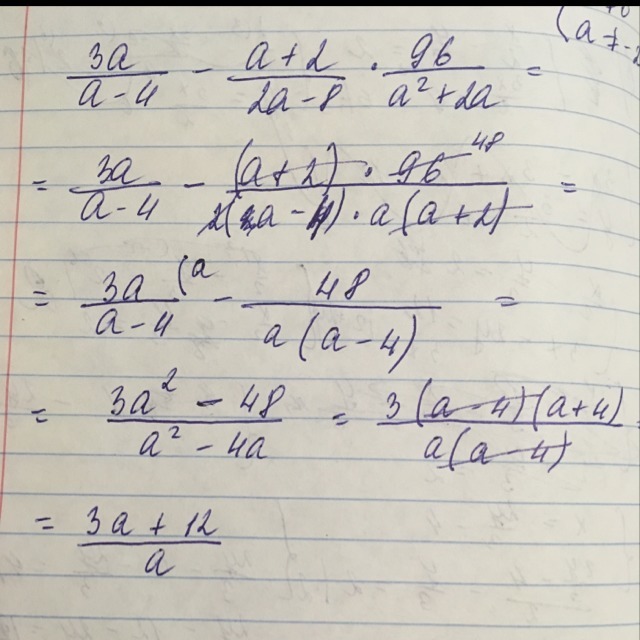 3a/(a - 4) - (a + 2)/(2a - 8) · 96/(a² + 2a) =
= 3a/(a - 4) - ((a + 2) · 96 48)/(2(a - 4) · a(a + 2)) =
= 3a (a/(a - 4) - 48/(a(a - 4)) =
= (3a² - 48)/(a² - 4a) = (3(a - 4)(a + 4))/(a(a - 4)) =
= (3a + 12)/a